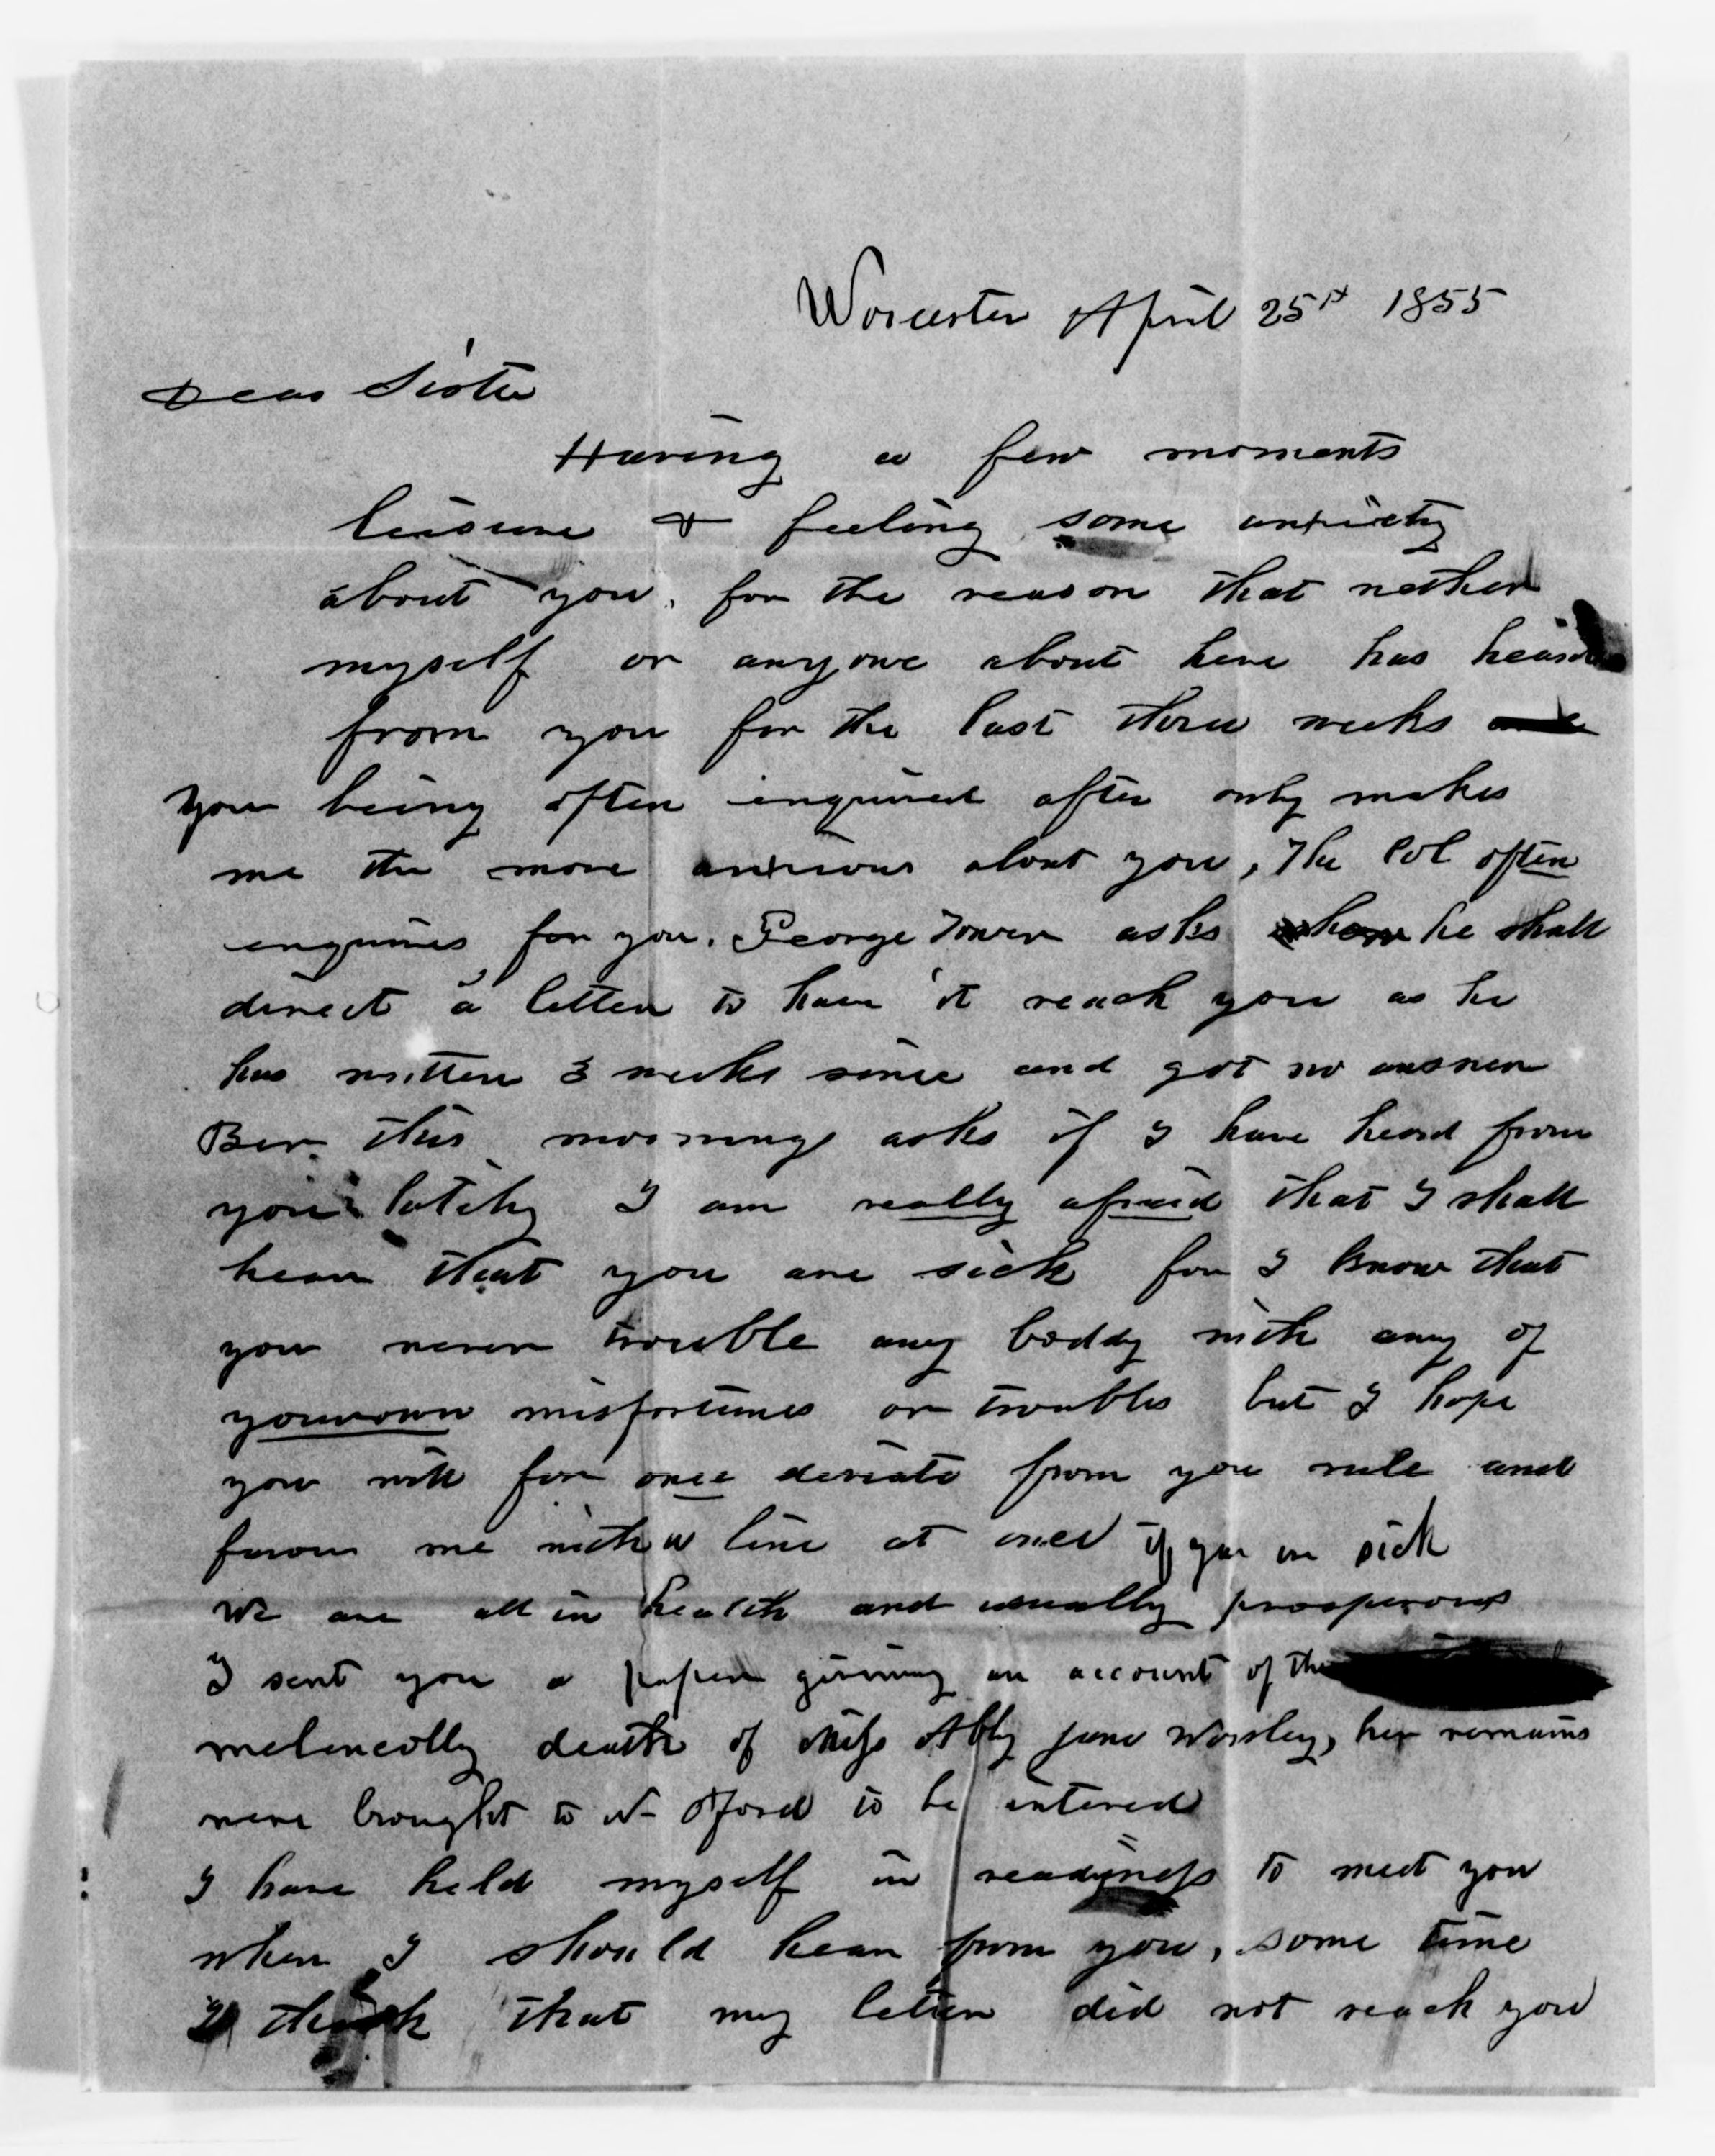 Worcester April 25st 1855
Dear Sister
Having a few moments
leisure & feeling some anxiety
about you, for the reason that nether
myself or anyone about here has heard
from you for the last three weeks
your being often enquired after only makes
me the more anxious about you, The Col often
enquires for you. George Tower asks where he shall
direct a letter to have it reach you as he
has written 3 weeks since and got no answer
Ber. this morning asks if I have heard from
you lately I am really afraid that I shall
hear that you are sick for I know that
you never trouble any boddy with any of
yourown misfortunes or troubles but I hope
you will for once deviate from you rule and
favor me with a line at once if you are sick
We are all in health and usually prosperous
I sent you a paper giving an account of the
melencolly death of Miss Abby Jane Worsley, her remains
were brought to N Oxford to be intered
I have held myself in readyness to meet you
when I should hear from you, some time
I think that my letter did not reach you